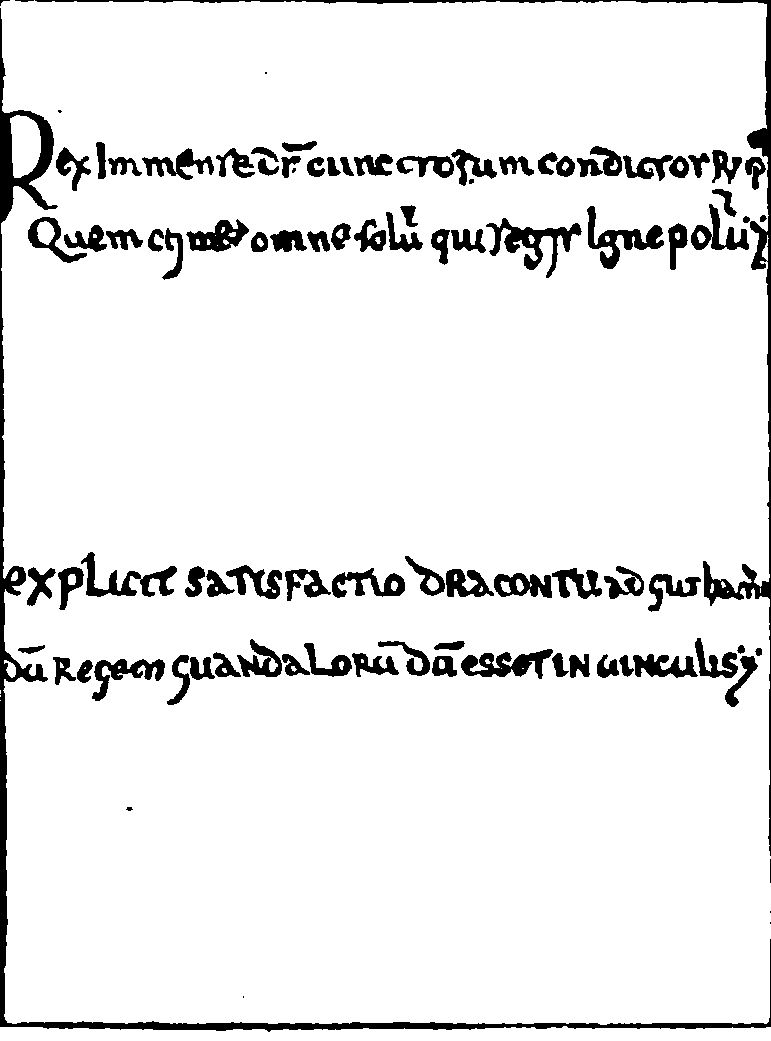 Rex Immense ds̄ cunctorum conditor
Quem tjmet omne solū qui regjs Igne polū
explicit satisfactio dracontii ad guthamū
dū Regem guandalorū dū esset in uinculis